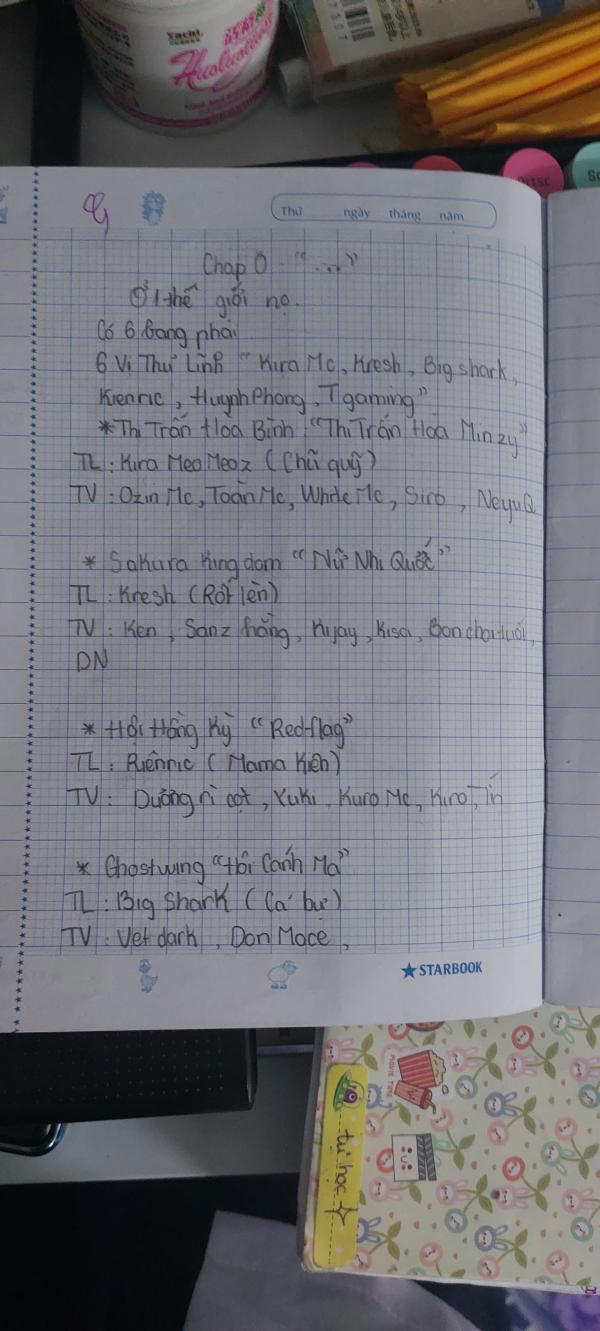 Yachi
Thứ ngày tháng năm
Chap 0 : "...."
Ở 1 thế giới nọ.
Có 6 bang phái
6 Vị Thủ Lĩnh "Kira Mc, Kresh, Big shark,
Kienric, HuynhPhong, T gaming"
*Thị Trấn Hòa Bình "Thị Trấn Hòa Minzy"
TL : Kira MeoMeoz (Chũ quỹ)
TV : Ozin Mc, Toàn Mc, While Mc, Siro, NeyuQ
* Sakura Kingdam "Nữ Nhi Quốc"
TL : Kresh (Rớt lên)
TV : Ken, Sanz hồng, Kijay, Kisa,
DN
* Hội Hồng Kỳ "Red-flag"
TL : (Mama Kiên)
TV : Dưỡng rỉ cọt, Yuki, Kuro Mc, Kiro, Tín
* Ghostwing "Hội Cánh Ma"
TL : Big Shark (Cá bự)
TV : Vet dark, Don Mace,
★ STARBOOK
MOVIE TIME
tự học